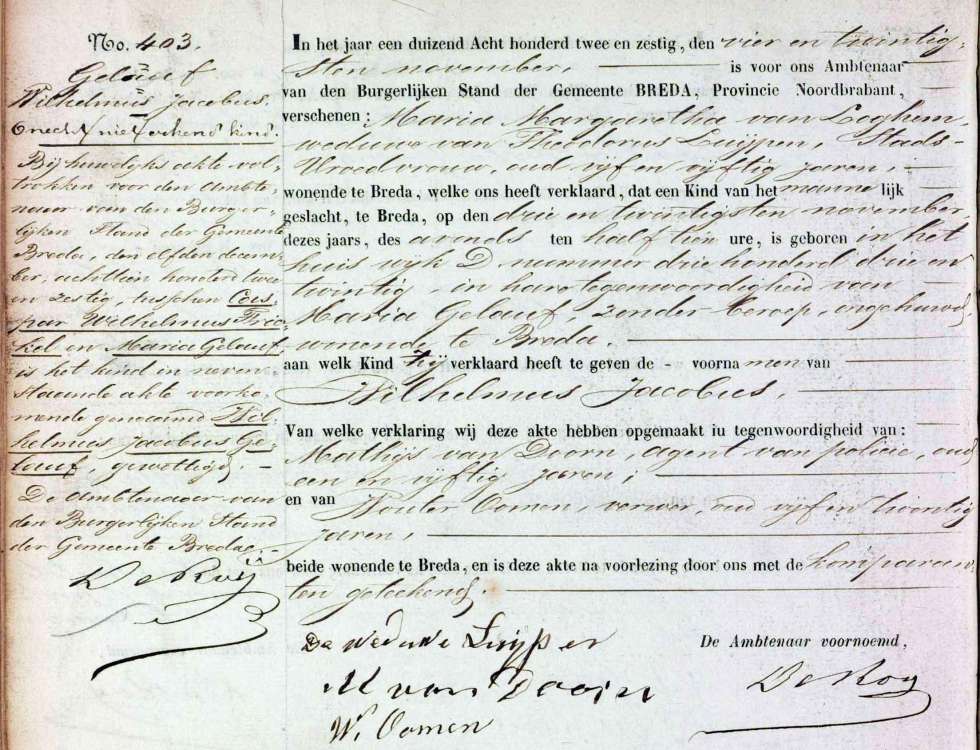 No. 403.
Gelauf
Wilhelmus Jacobus.
Onecht/niet erkend kind.
Bij huwelijks akte vol-
trokken voor den Ambte-
naar van den Burger-
lijken Stand der Gemeente
Breda, den elfden decem-
ber, achttien honderd twee
en zestig, tusschen Cas-
par Wilhelmus
en Maria Gelauf
is het kind in neven-
staande akte voorko-
mende genaamd Wil-
helmus Jacobus Ge-
lauf, gewettigd. -
De Ambtenaar van
den Burgerlijken Stand
der Gemeente Breda. -
De Roij
In het jaar een duizend Acht honderd twee en zestig, den vier en twintig-
sten november, is voor ons Ambtenaar
van den Burgerlijken Stand der Gemeente BREDA, Provincie Noordbrabant,
verschenen: Maria Margaretha van Loghem,
weduwe van Theodorus Luijpen, Stads-
Vroedvrouw, oud vijf en vijftig jaren,
wonende te Breda, welke ons heeft verklaard, dat een Kind van het manne lijk
geslacht, te Breda, op den drie en twintigsten november,
dezes jaars, des avonds ten half tien ure, is geboren in het
huis wijk D nummer drie honderd drie en
twintig, in hare tegenwoordigheid van
Maria Gelauf, zonder beroep, ongehuwd
wonende te Breda.
aan welk Kind zij verklaard heeft te geven de - voorna men van
Wilhelmus Jacobus.
Van welke verklaring wij deze akte hebben opgemaakt iu tegenwoordigheid van:
Mathijs van Doorn, agent van policie, oud
een en vijftig jaren;
en van Wouter Oomen, verwer, oud vijf en twintig
jaren,
beide wonende te Breda, en is deze akte na voorlezing door ons met de komparan-
ten geteekend.
De Weduwe Luijpen
M van Doorn
W. Oomen
De Ambtenaar voornoemd,
De Roy